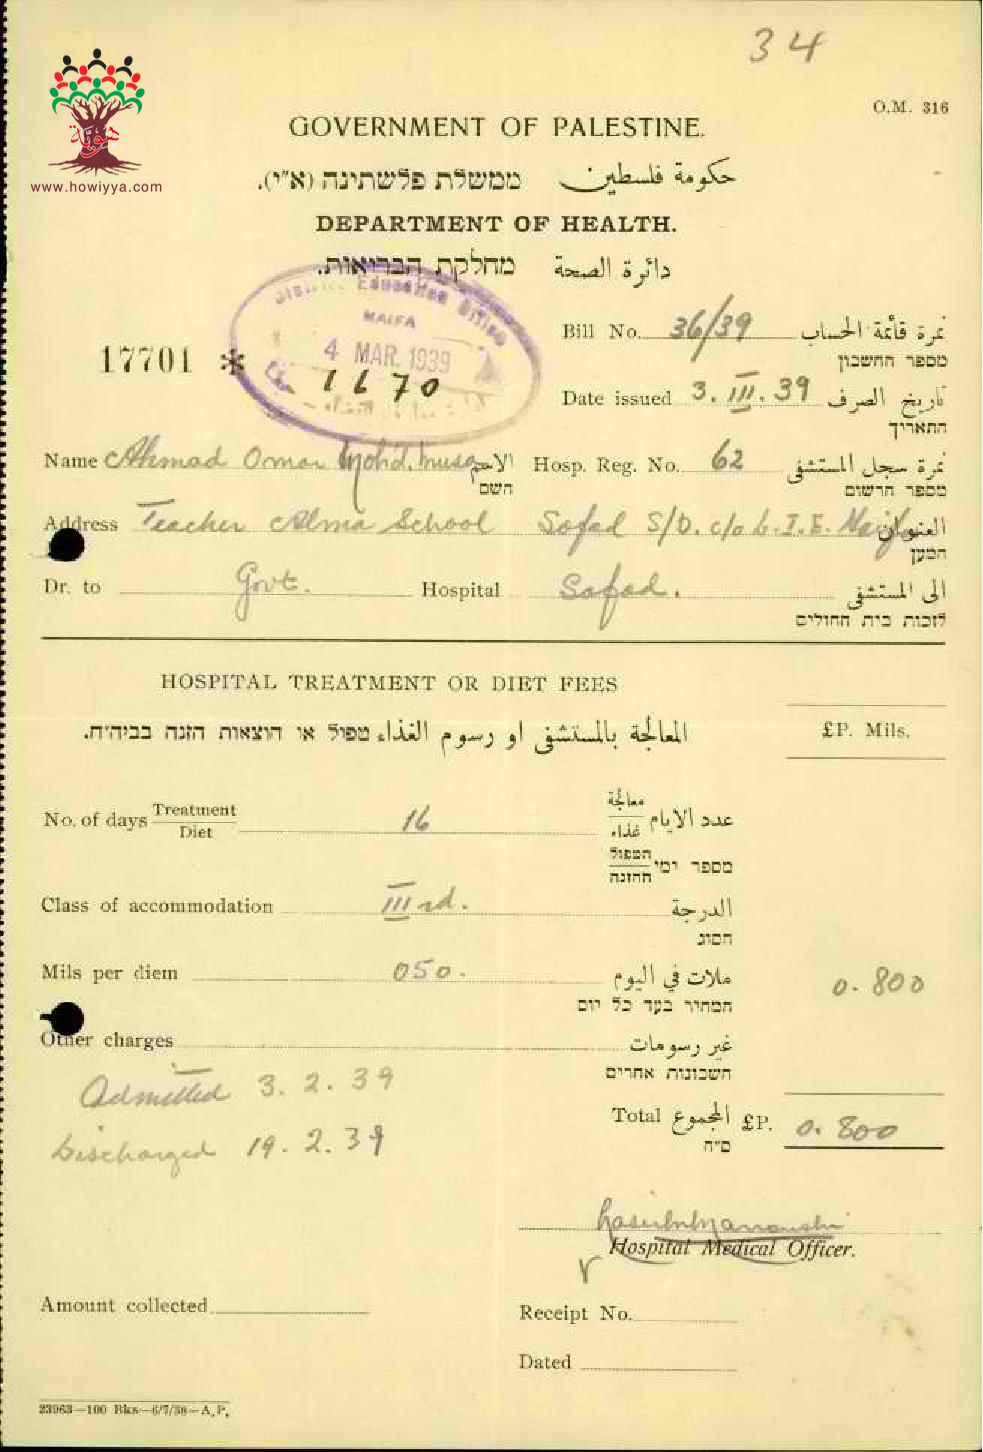 34
O.M. 316
هوية
www.howiyya.com
GOVERNMENT OF PALESTINE.
حكومة فلسطين ממשלת פלשתינה (א״י).
DEPARTMENT OF HEALTH.
دائرة الصحة מחלקת הבריאות.
District Education Office
HAIFA
4 MAR. 1939
1670
17701 *
Bill No. 36/39 نمرة قائمة الحساب
מספר החשבון
Date issued 3. III. 39 تاريخ الصرف
התאריך
Name Ahmad Omar Mohd. Musa الاسم Hosp. Reg. No. 62 نمرة سجل المستشفى
השם מספר הרשום
Address Teacher Alma School Safad S/D. c/o D.I.E. Haifa العنوان
המען
Dr. to Govt. Hospital Safad. الى المستشفى
לזכות בית החולים
HOSPITAL TREATMENT OR DIET FEES
المعالجة بالمستشفى او رسوم الغذاء טפול או הוצאות הזנה בביה״ח.
£P. Mils.
No. of days Treatment/Diet 16 عدد الايام معالجة/غذاء
מספר ימי הטפול/ההזנה
Class of accommodation IIIrd. الدرجة
הסוג
Mils per diem 050. ملات في اليوم 0.800
המחיר בעד כל יום
Other charges غير رسومات
חשבונות אחרים
Admitted 3. 2. 39
Total المجموع £P. 0.800
ס״ה
Discharged 19. 2. 39
Hospital Medical Officer.
Amount collected
Receipt No.
Dated
23963—100 Bks—6/7/38—A.P.